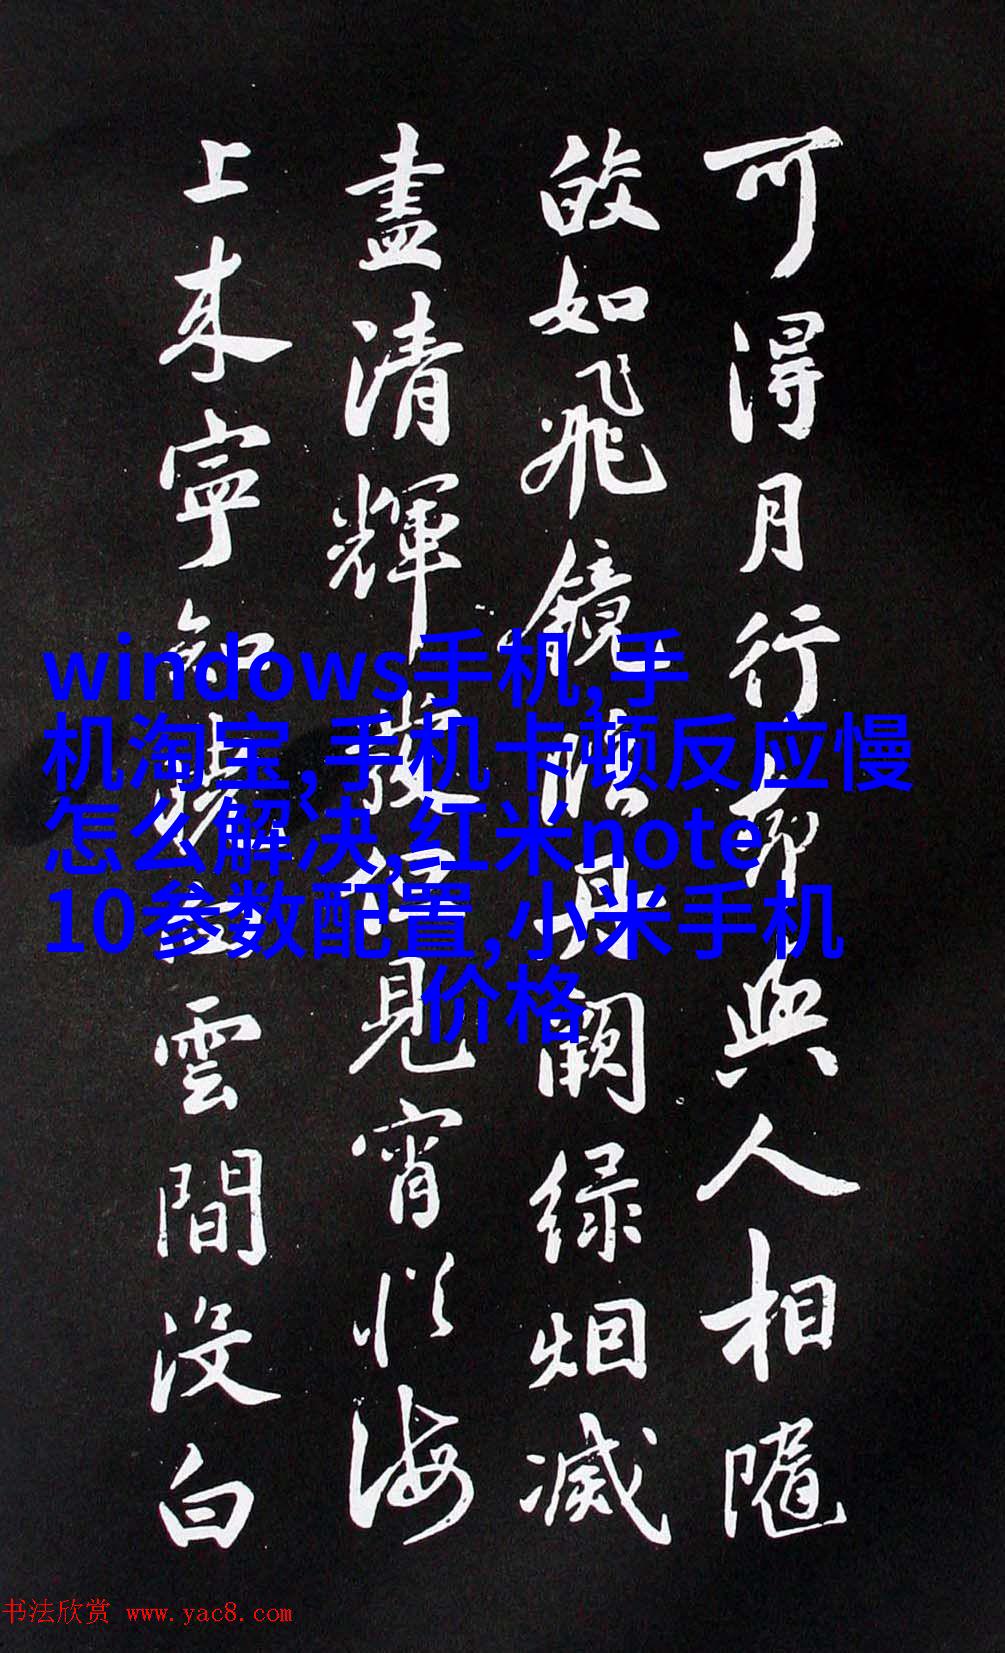 可得月行却與人相隨
皎如飛鏡臨丹闕绿烟滅
盡清輝發但見宵從海
上来寧知曉向雲間沒白
windows手机,手
机淘宝,手机卡顿反应慢
怎么解决,红米note
10参数配置,小米手机
价格
书法欣赏 www.yac8.com